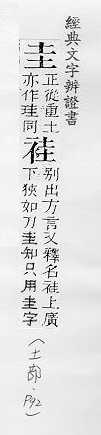 經典文字辨證書
圭
正從重土
亦作珪同
袿
別出方言又釋名袿上廣
下狹如刀圭知只用圭字
（土部·